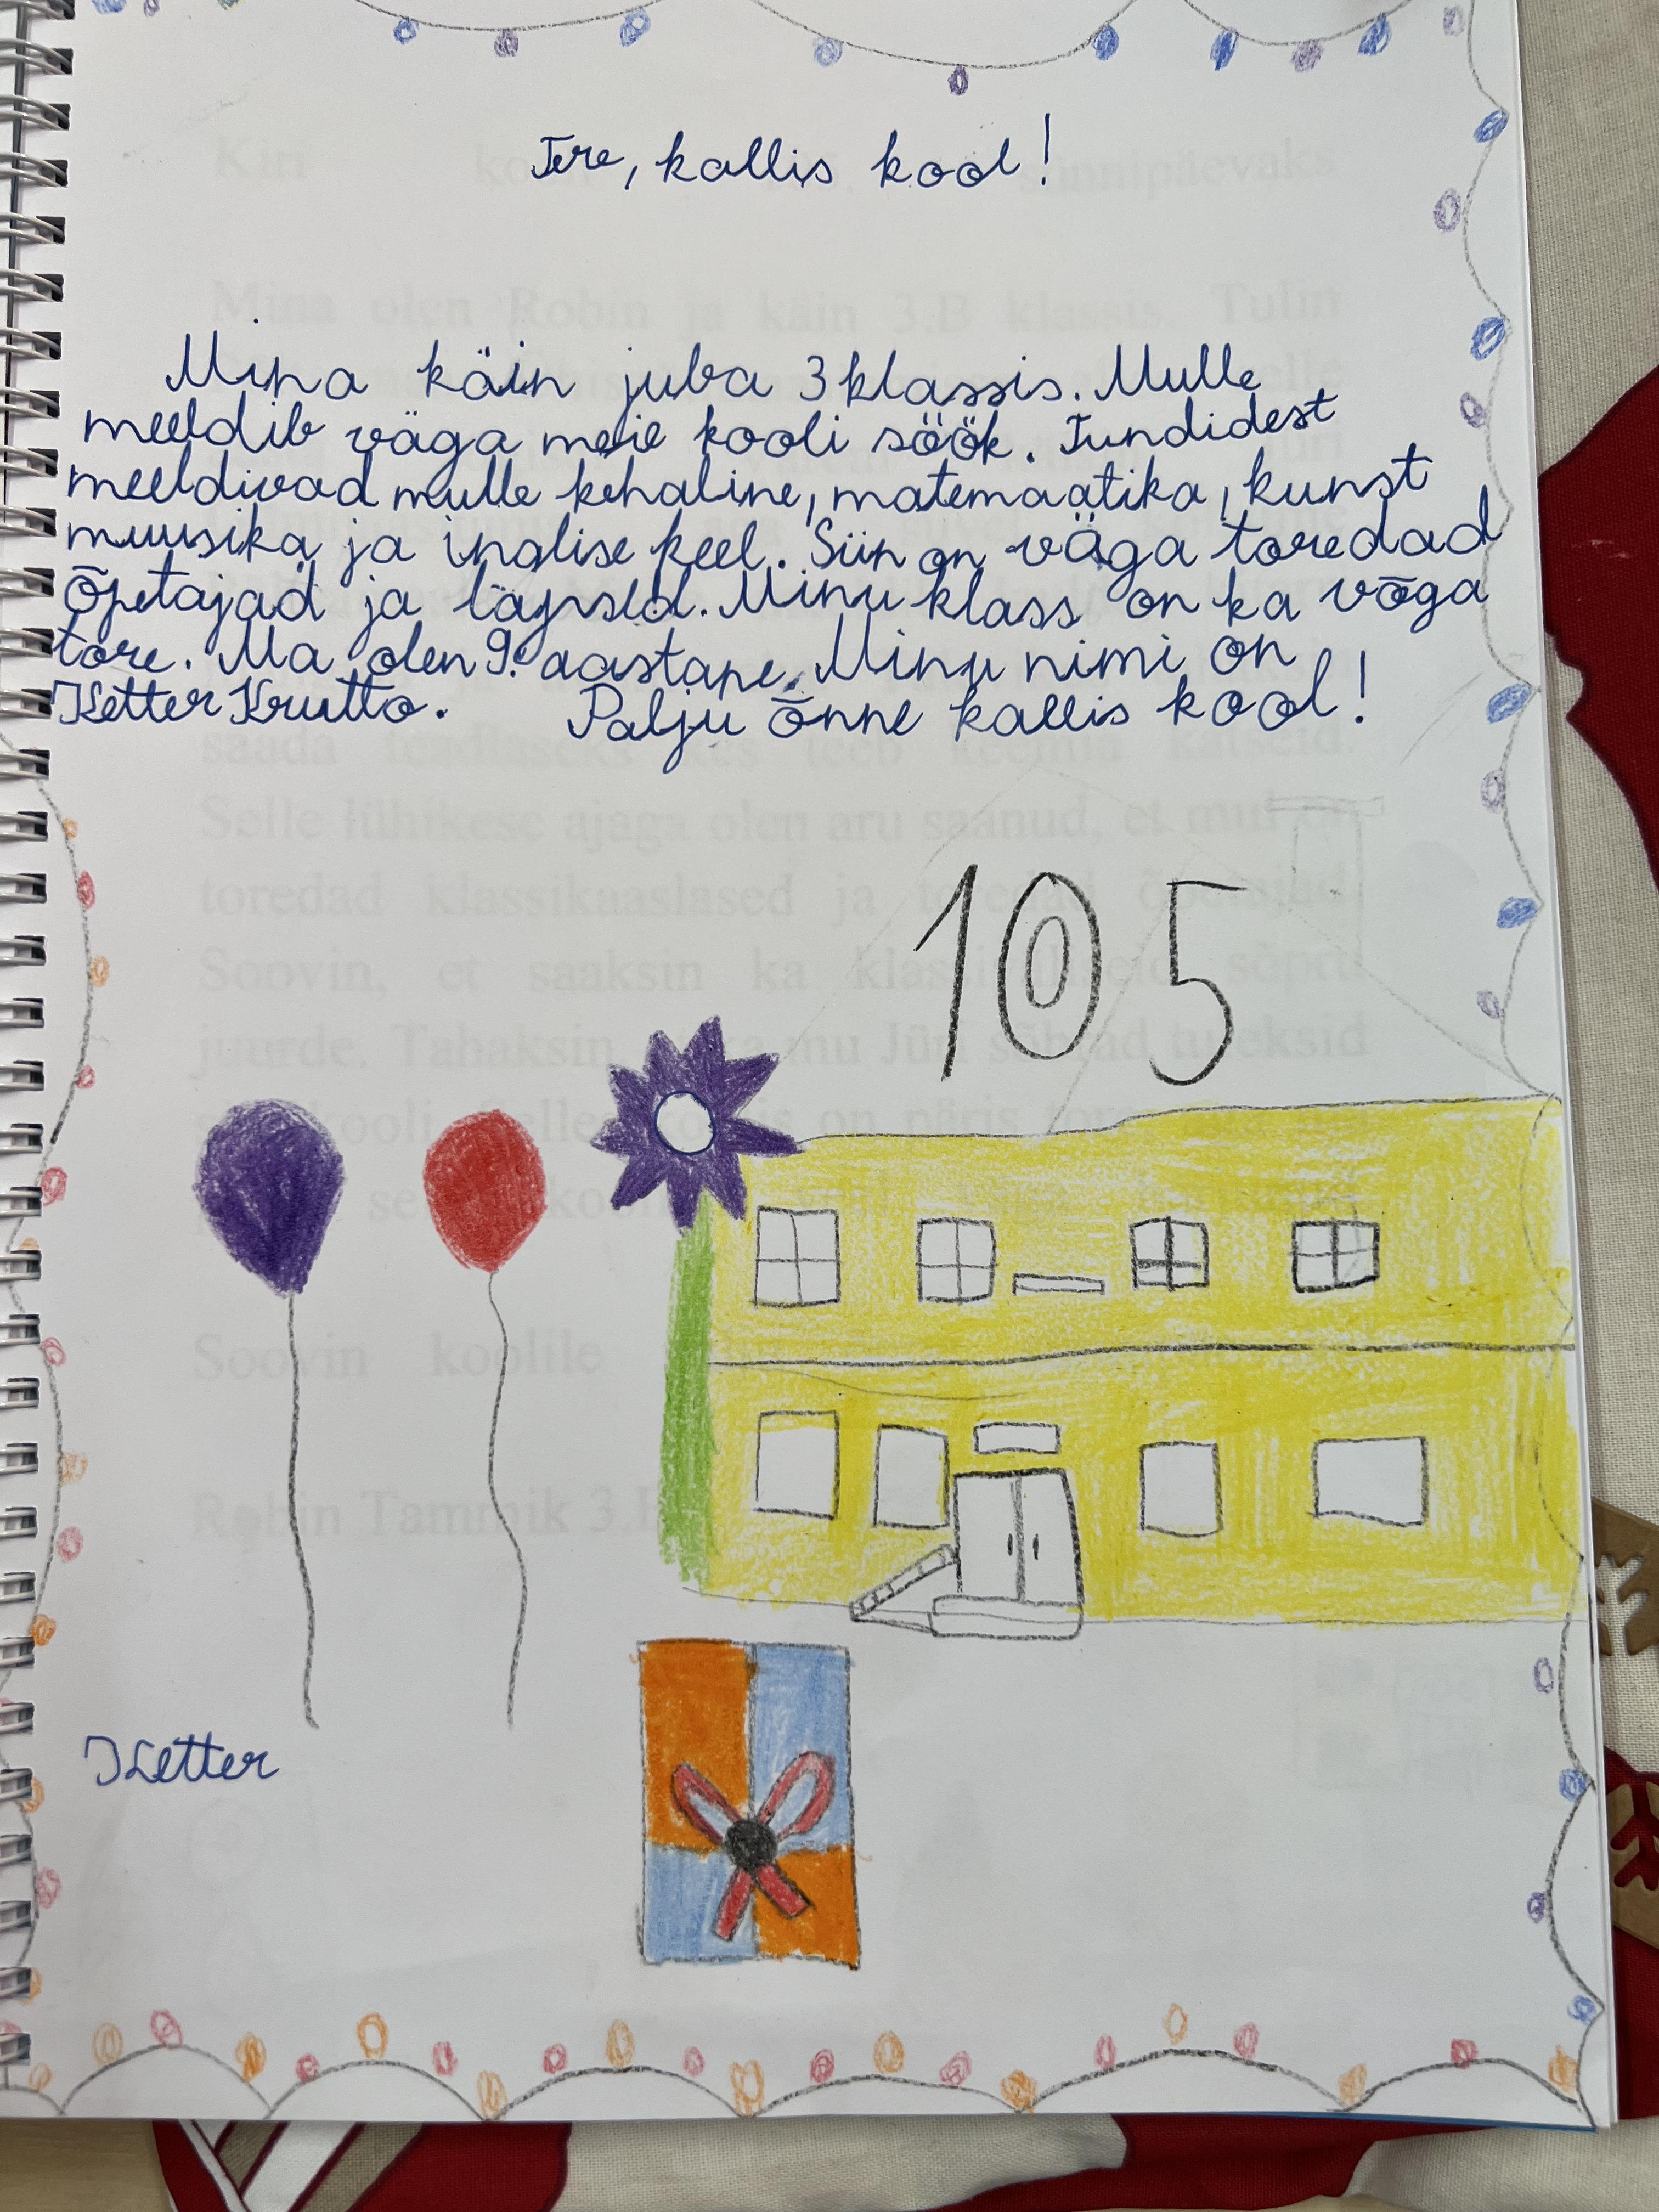 Tere, kallis kool!
Mina käin juba 3 klassis. Mulle
meeldib väga meie kooli söök. Tundidest
meeldivad mulle kehaline, matemaatika, kunst
muusika ja inglise keel. Siin on väga toredad
õpetajad ja lapsed. Minu klass on ka väga
tore. Ma olen 9. aastane. Minu nimi on
Ketter Krutto. Palju õnne kallis kool!
105
Ketter